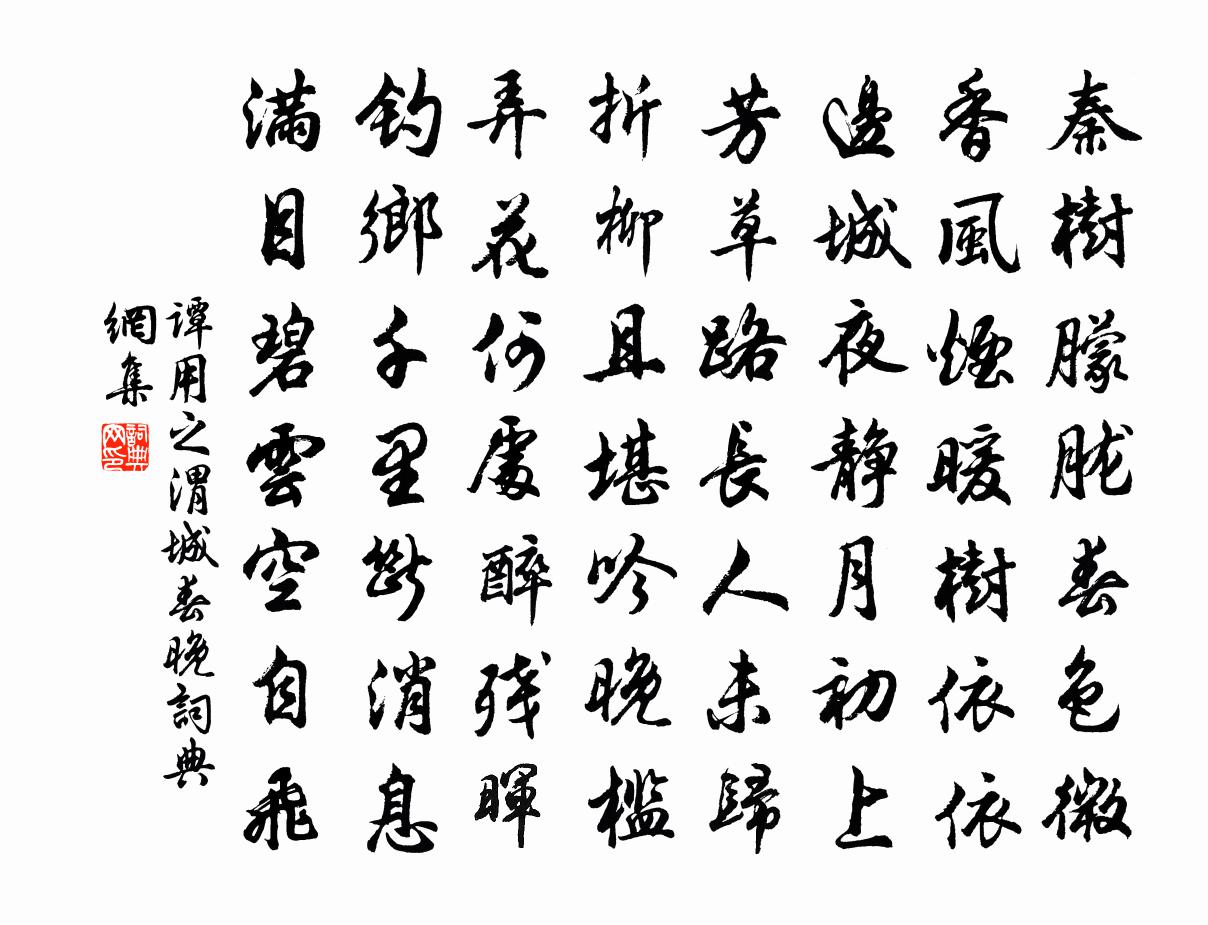 秦樹朦朧春色微
香風煙暖樹依依
邊城夜靜月初上
芳草路長人未歸
折柳且堪吟晚檻
弄花何處醉殘暉
釣鄉千里斷消息
滿目碧雲空自飛
譚用之渭城春晚詞典
網集
詞典
网印